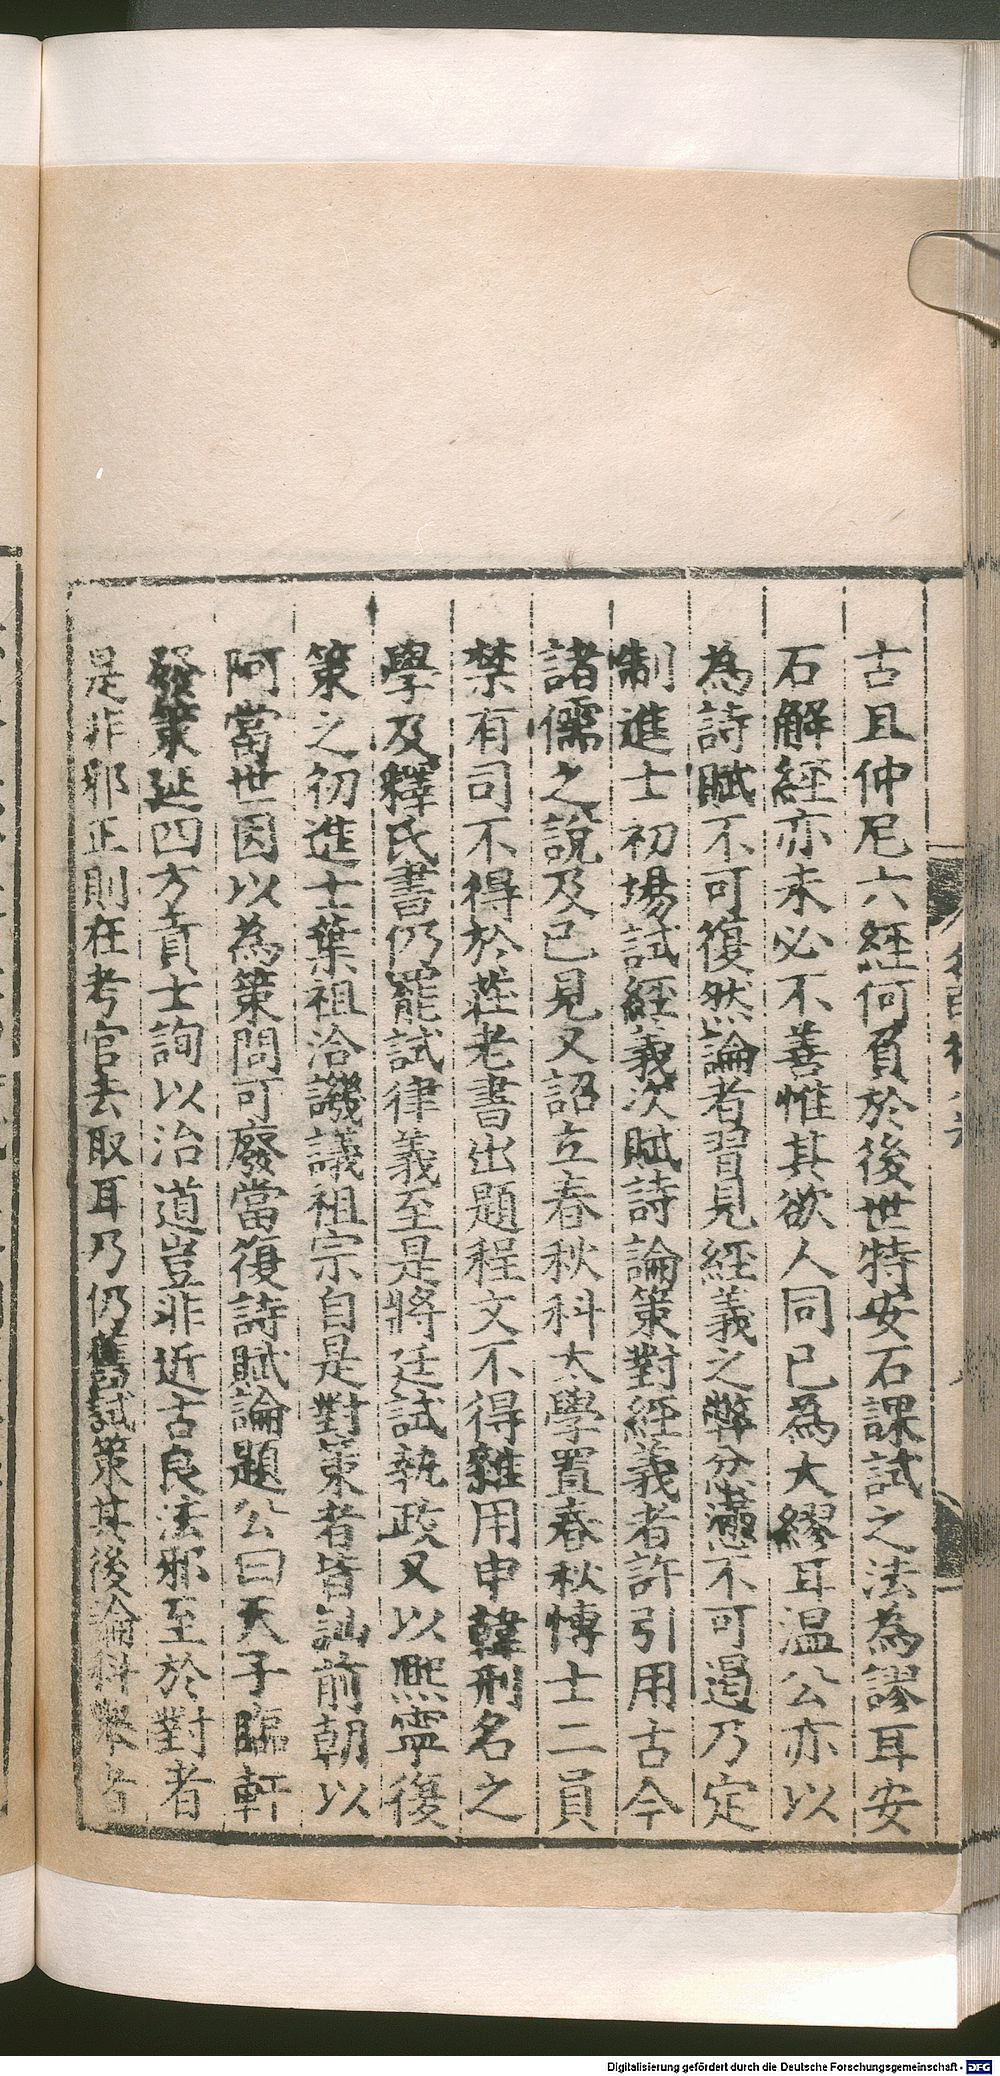 古且仲尼六經何負於後世特安石課試之法為謬耳安
石解經亦未必不善惟其欲人同己為大繆耳温公亦以
為詩賦不可復然論者習見經義之弊忿懣不可遏乃定
制進士初場試經義次賦詩論策對經義者許引用古今
諸儒之說及己見又詔立春秋科太學置春秋博士二員
禁有司不得於莊老書出題程文不得雜用申韓刑名之
學及釋氏書仍罷試律義至是將廷試執政又以熙寧復
策之初進士葉祖洽譏議祖宗自是對策者皆訕前朝以
阿當世因以為策問可廢當復詩賦論題公曰天子臨軒
發策延四方貢士詢以治道豈非近古良法邪至於對者
是非邪正則在考官去取耳乃仍舊試策其後論科舉者
Digitalisierung gefördert durch die Deutsche Forschungsgemeinschaft - DFG